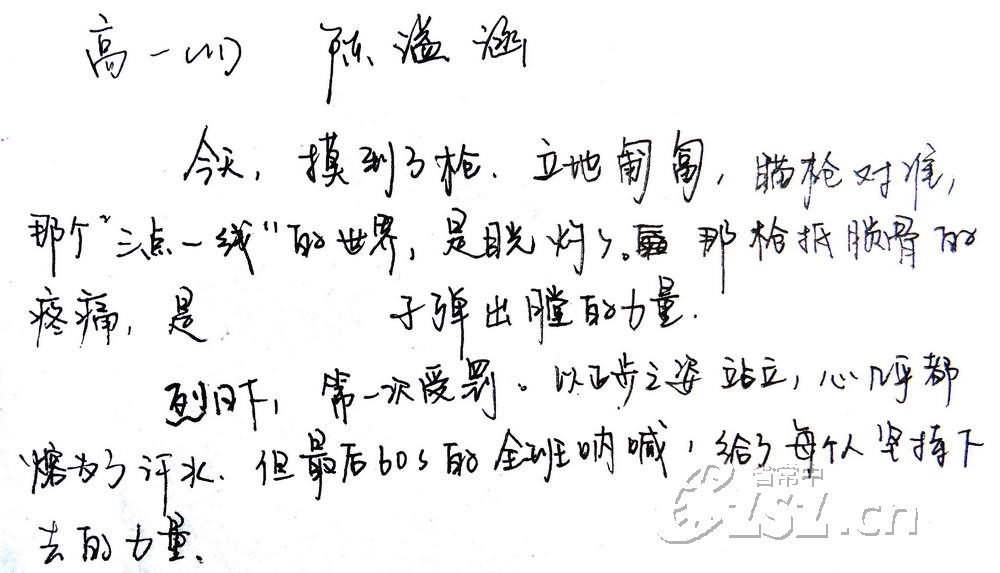 高一(1) 陈溢涵
今天,摸到了枪.立地匍匐,瞄枪对准,
那个"三点一线"的世界,是目光灼灼。那枪抵锁骨的
疼痛,是 子弹出膛的力量.
烈日下,第一次受罚。以正步之姿站立,心几乎都
熔为了汗水.但最后60s的全班呐喊,给了每个人坚持下
去的力量.
省常中
ZSZ.cn